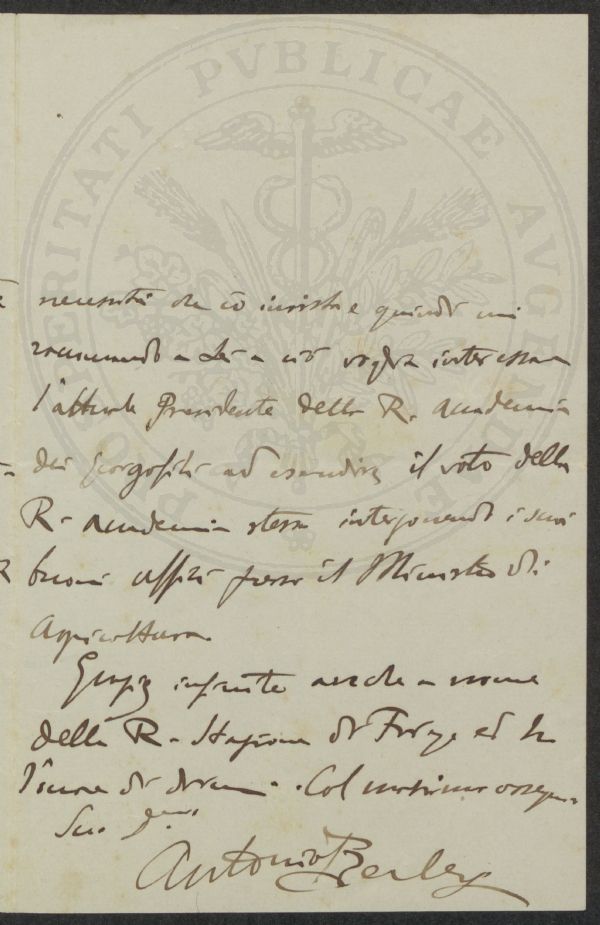 PROSPERITATI PVBLICAE AVGENDAE
necessità che ciò insista e quindi mi
raccomando a Lei a ciò voglia interessare
l'attuale Presidente della R. Accademia
dei Georgofili ad esaudire il voto della
R. Accademia stessa interponendo i suoi
buoni uffizi presso il Ministro di
Agricoltura.
Grazie infinite anche a nome
della R. Stazione di Firenze ed ho
l'onore di dirmi. Col massimo ossequio
Suo Dev.
Antonio Berlese